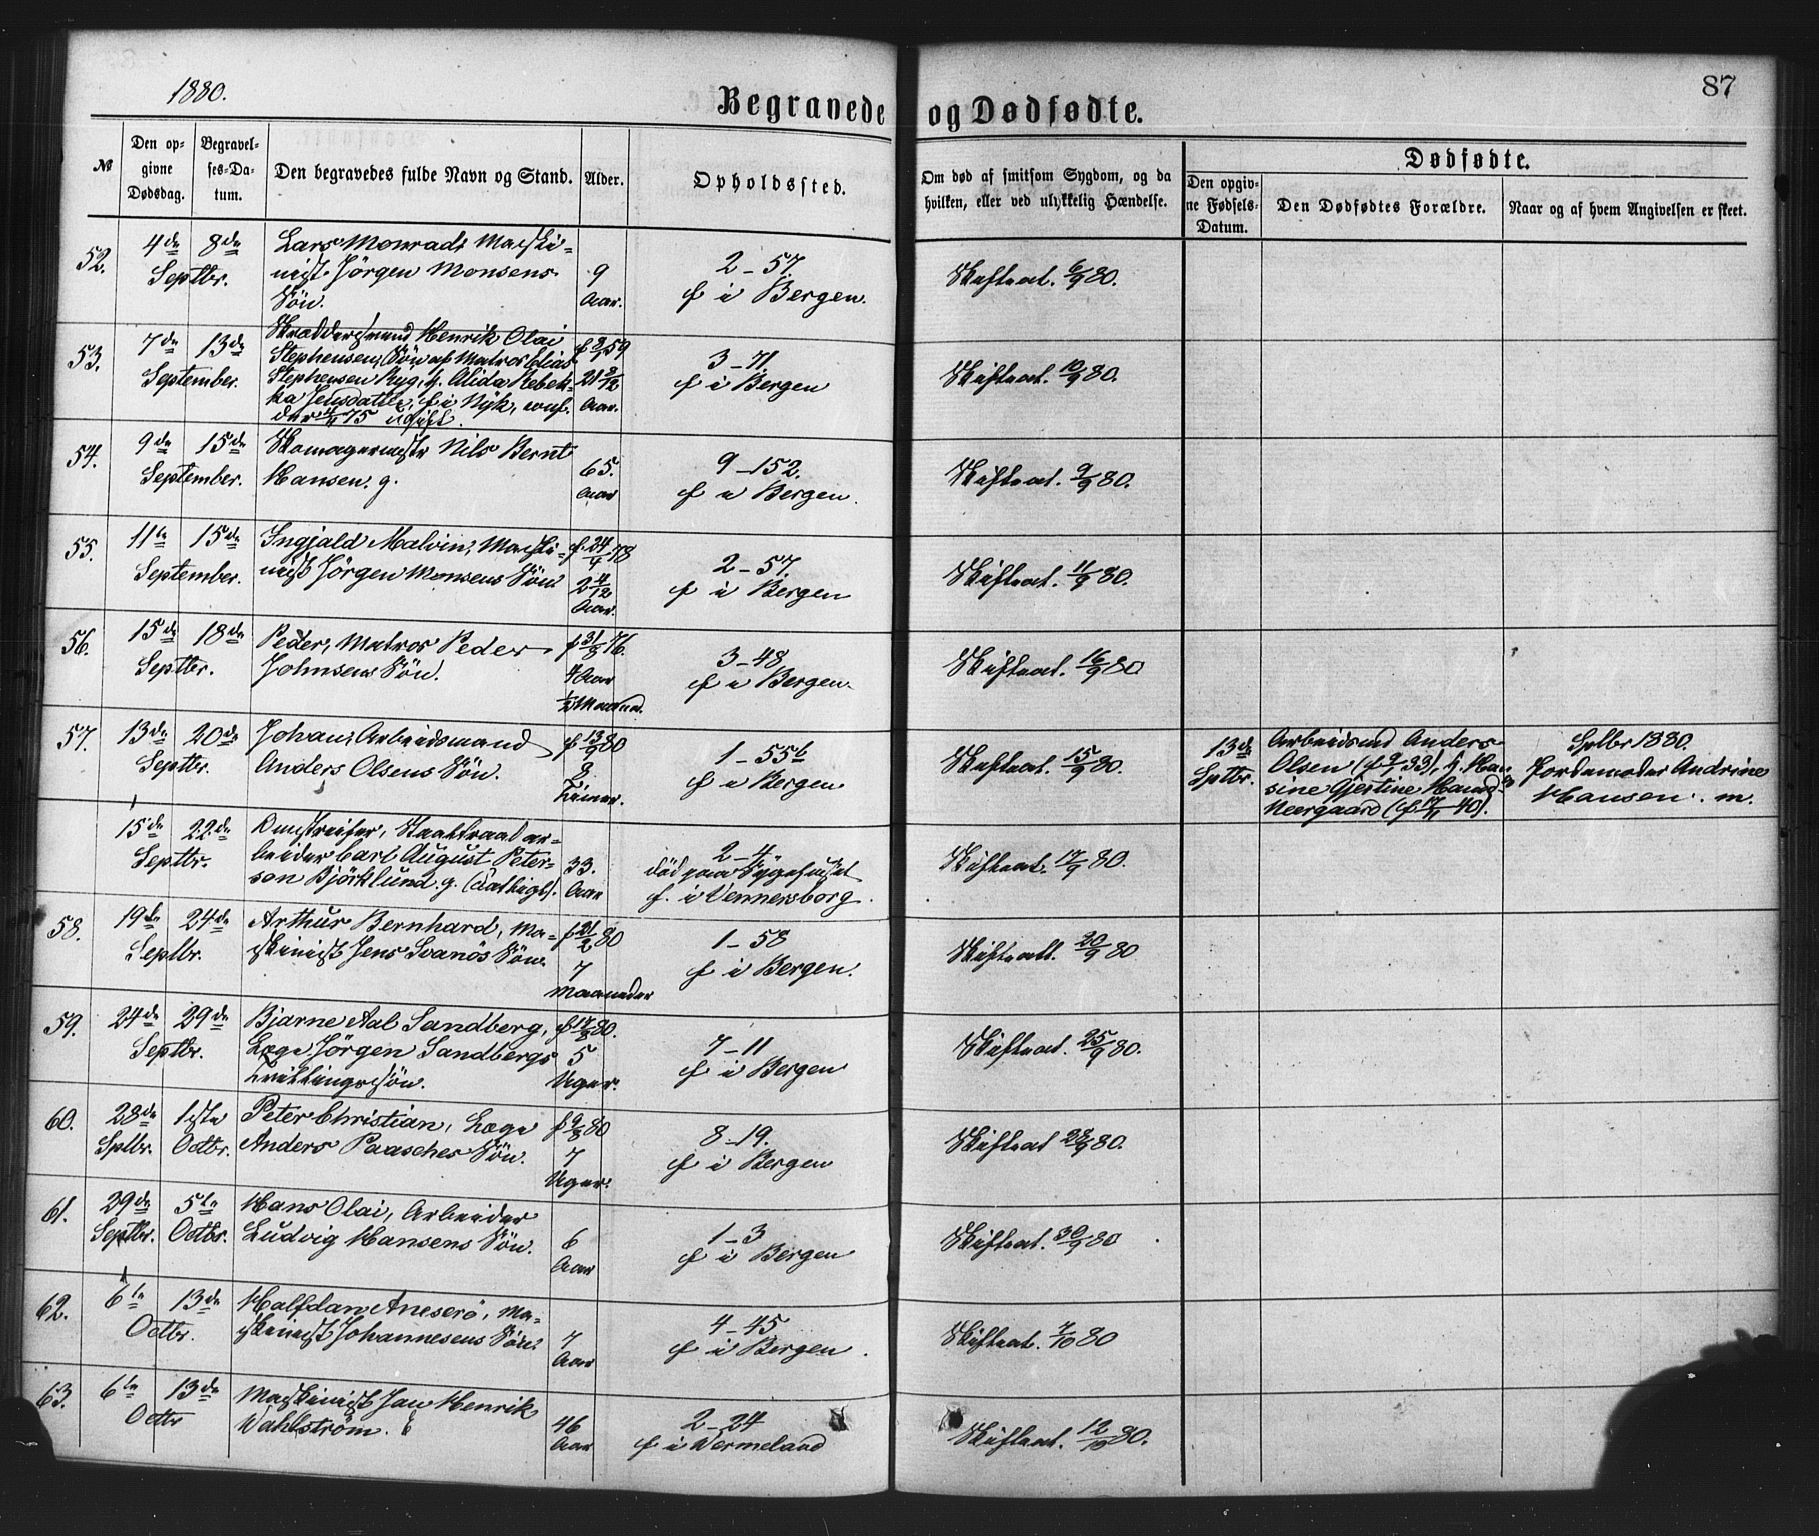 1880.
Begravede og Dødfødte.
87
№
Den opgivne Dødsdag.
Begravelses-Datum.
Den begravedes fulde Navn og Stand.
Alder.
Opholdssted.
Om død af smitsom Sygdom, og da hvilken, eller ved ulykkelig Hændelse.
Dødfødte.
Den opgivne Fødsels-Datum.
Den Dødfødtes Forældre.
Naar og af hvem Angivelsen er skeet.
52. 4de 8de Lars Monrad, Maski-
Septbr. nist Jörgen Monsens 9 2-57. Skifteat. 6/9 80.
Sön. Aar. f i Bergen.
53. 7de 13de Skræddersvend Henrik Olai f 3/1 59
September. Stephensen, Sön af Matros Elias 3-71. Skifteat. 10/9 80.
Stephensen Ryg, h. Alida Rebek- 21 8/12 f i Bergen
ka Jensdatter, f i Nyk, conf. Aar.
der 4/4 75 ugift.
54. 9de 15de Skomagermester Nils Bernt 65. 9-152. Skifteat. 9/9 80.
September. Hansen. g. Aar f i Bergen.
55. 11te 15de Ingjald Malvin, Maski- f. 24/4 78 2-57. Skifteat. 11/9 80.
September. nist Jörgen Monsens Sön 2 4/12 f i Bergen
Aar.
56. 15de 18de Peder, Matros Peder f 31/8 76. 3-48 Skifteat. 16/9 80
Septbr. Johnsens Sön. 4 Aar f i Bergen.
1/2 Maaned.
57. 13de 20de Johan, Arbeidsmand f 13/9 80 1-55b Skifteat. 15/9 80.
Septbr. Anders Olsens Sön. 8 f i Bergen
Timer.
13de Septbr. Arbeidsmd Anders
Olsen (f 9/7 33), h. Han-
sine Gjertine Hansd.
Neergaard (f. 17/11 40).
Sptbr 1880.
Jordemoder Andrine
Hansen. m.
15de 22de Omstreifer, Staaltraadar-
Septbr. beider Carl August Peter- 33. 2-4 Skifteat. 17/9 80.
son Björklund. g. Aar död paa Sygehuset
f. i Vennersborg.
58. 19de 24de Arthur Bernhard, Ma- f 21/2 80 1-58 Skifteatt. 20/9 80
Septbr. skinist Jens Svanös Sön. 7 f i Bergen.
Maaneder
59. 24de 29de Bjarne Aal Sandberg, f 17/8 80. 7-11 Skifteat. 25/9 80.
Septbr. Læge Jörgen Sandbergs 5 f i Bergen
Trillingsön. Uger.
60. 28de 1ste Peter Christian, Læge f 9/8 80 8-19. Skifteat 28/9 80.
Sptbr. Octbr. Anders Paasches Sön. 7 f i Bergen
Uger.
61. 29de 5te Hans Olai, Arbeider 1-3 Skifteat. 30/9 80
Septbr. Octbr. Ludvig Hansens Sön. 6 f i Bergen
Aar
62. 6te 13de Halfdan Aneserö, Ma- 4-45 Skifteat. 7/10 80
Octbr. skinist Johannesens Sön. 7 f i Bergen.
Aar
63. 6te 13de Maskinist Jan Henrik 46 2-24 Skifteat. 12/10 80.
Octbr Wahlström. Aar f i Vermeland